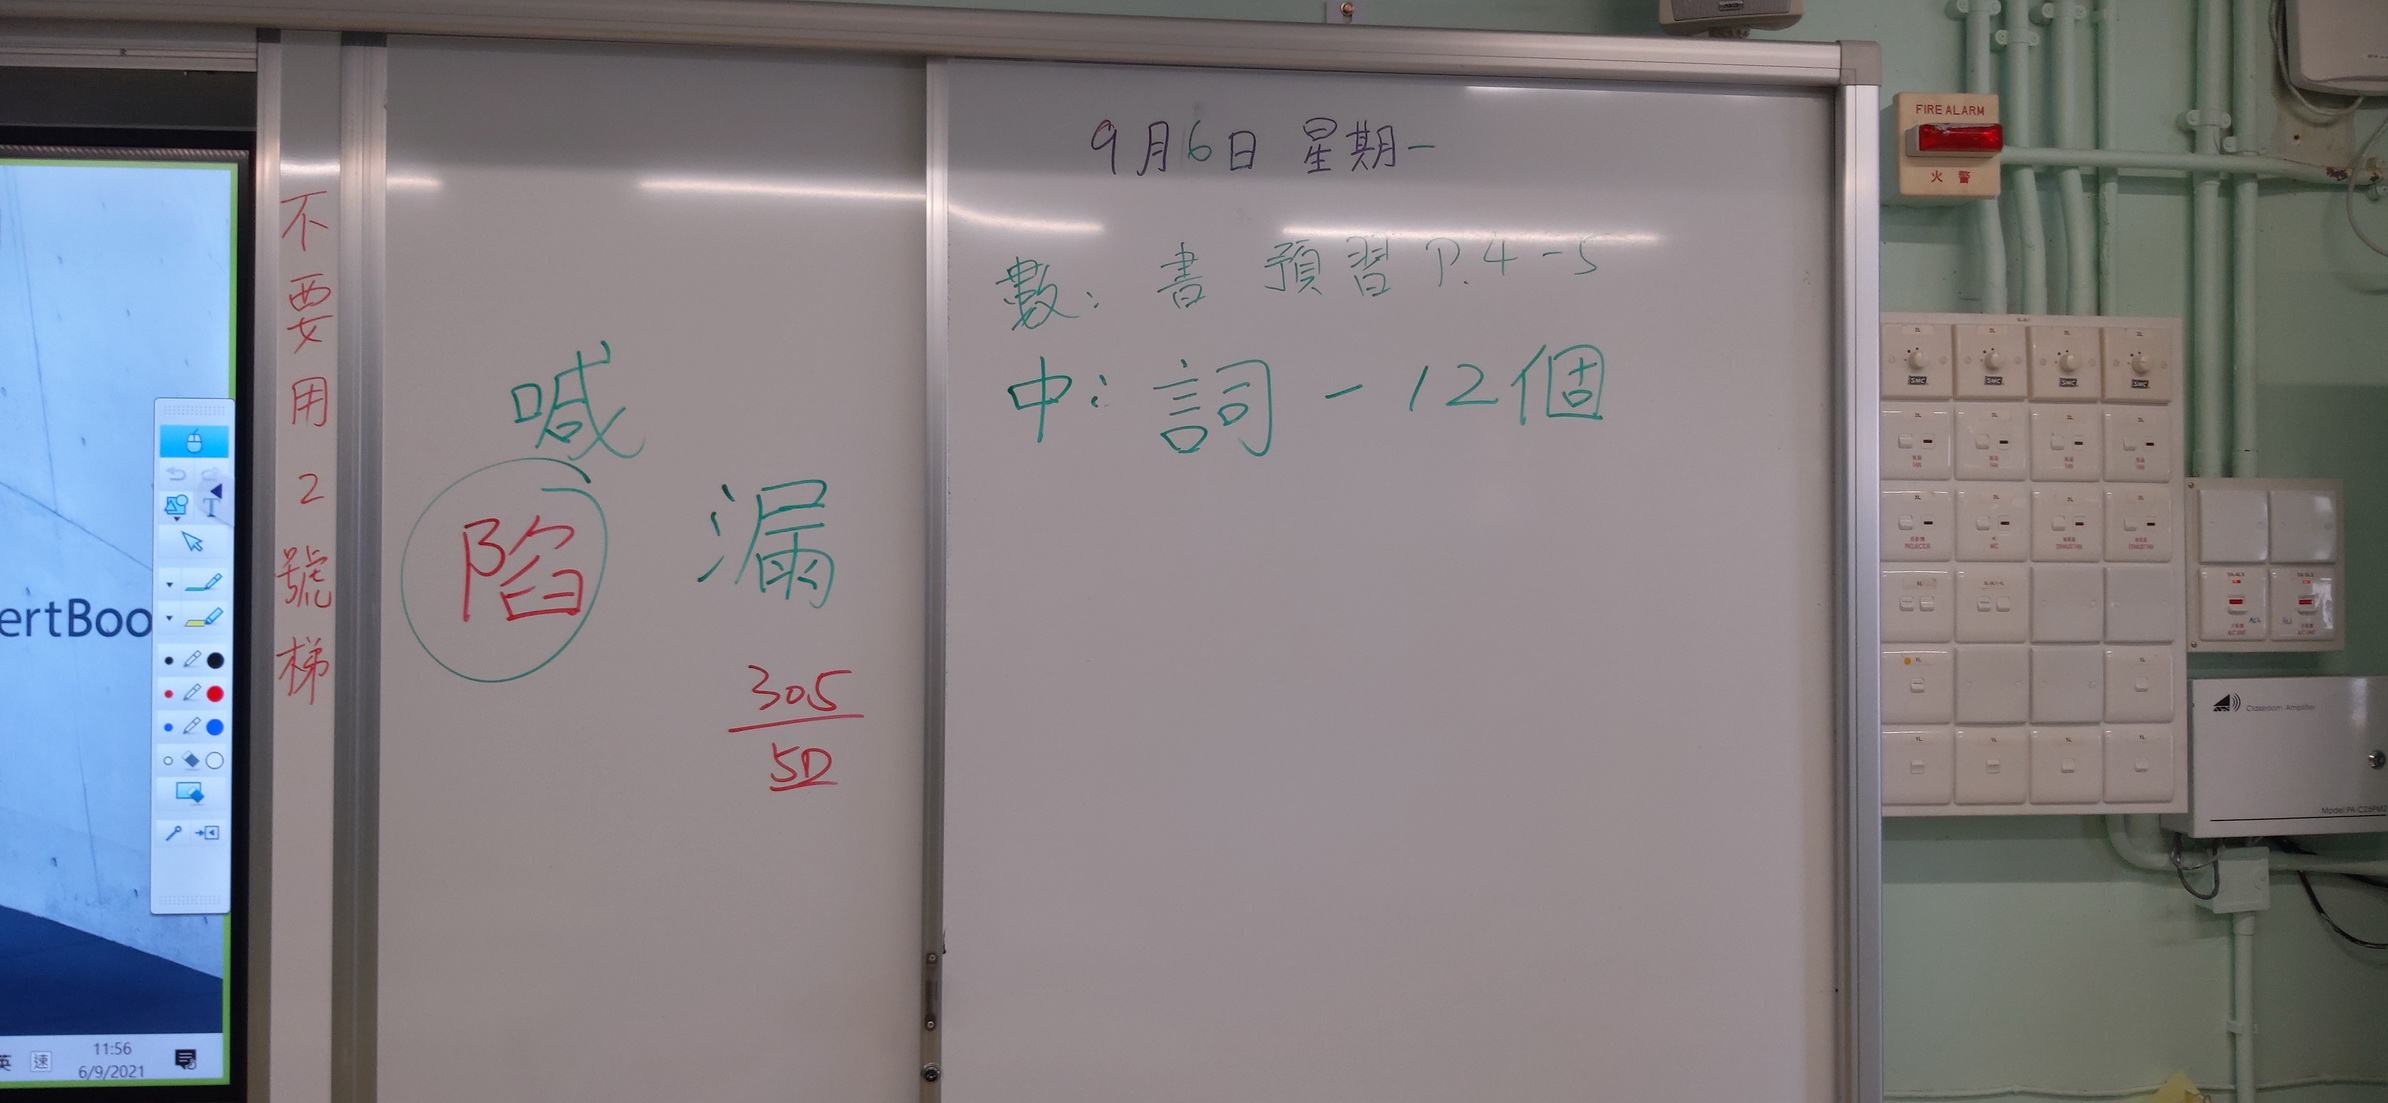 9月6日 星期一
數: 書 預習 P.4-5
中: 詞 - 12個
喊
陷
漏
305
5D
不要用2號梯
ertBoo
T
英 速
11:56
6/9/2021
FIRE ALARM
火警
SMC SMC SMC SMC
Classroom Amplifier